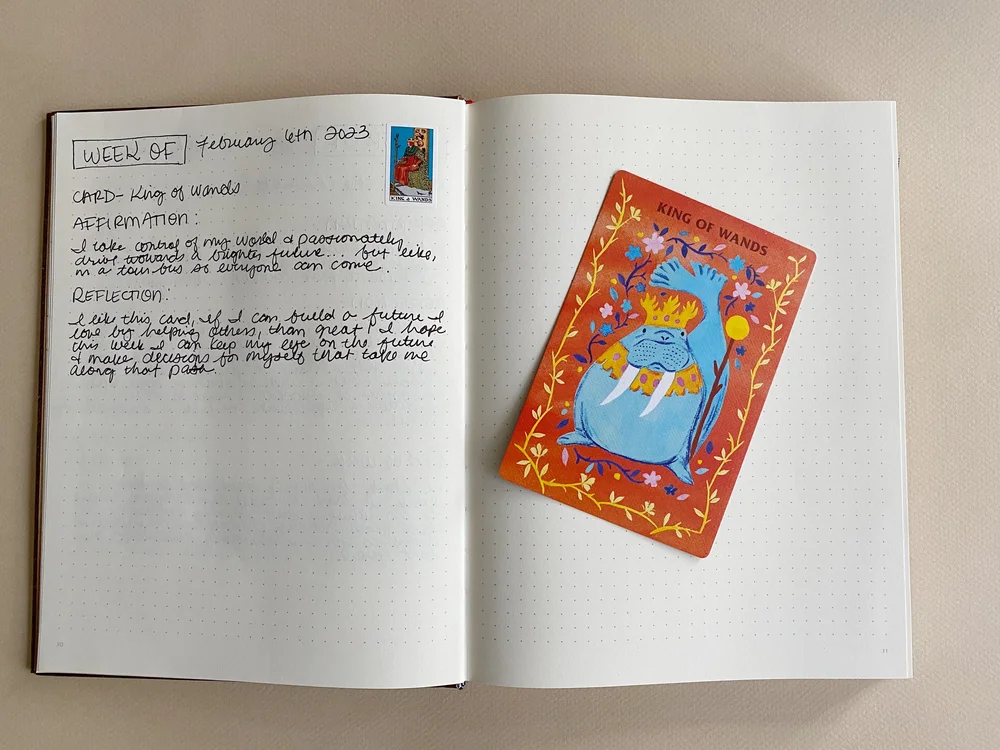 WEEK OF February 6th 2023
KING of WANDS
CARD- King of Wands
AFFIRMATION:
I take control of my world & passionately
drive towards a brighter future... but like,
in a tour bus so everyone can come.
REFLECTION:
I like this card, if I can build a future I
love by helping others, than great I hope
this week I can keep my eye on the future
& make decisions for myself that take me
along that path.
10
KING OF WANDS
11